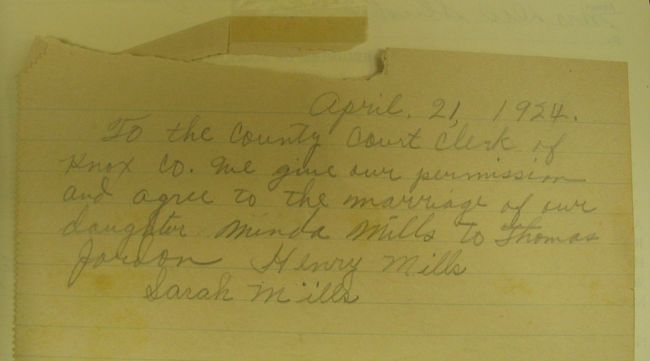 April. 21, 1924.
To the County Court Clerk of
Knox Co. We give our permission
and agree to the marriage of our
daughter Minda Mills to Thomas
Jordon Henry Mills
Sarah Mills